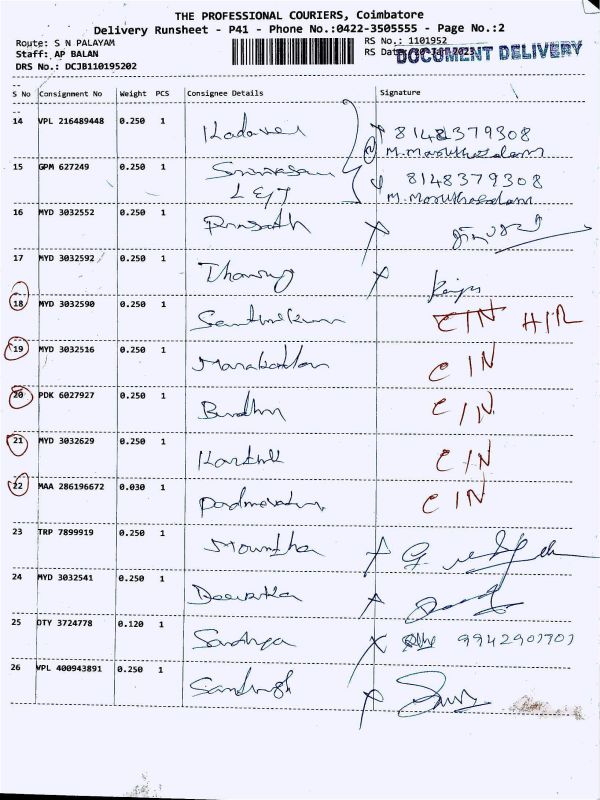 THE PROFESSIONAL COURIERS, Coimbatore
Delivery Runsheet - P41 - Phone No.:0422-3505555 - Page No.:2
Route: S N PALAYAM RS No.: 1101952
Staff: AP BALAN RS Dat
DOCUMENT DELIVERY
DRS No.: DCJB110195202
S No Consignment No Weight PCS Consignee Details Signature
14 VPL 216489448 0.250 1 Kadavel 8148379308
15 GPM 627249 0.250 1 Srinivasan 8148379308
16 MYD 3032552 0.250 1 Prasath
17 MYD 3032592 0.250 1
18 MYD 3032590 0.250 1 CIN H/R
19 MYD 3032516 0.250 1 CIN
20 PDK 6027927 0.250 1 CIN
21 MYD 3032629 0.250 1 Karthik CIN
22 MAA 286196672 0.030 1 CIN
23 TRP 7899919 0.250 1
24 MYD 3032541 0.250 1
25 OTY 3724778 0.120 1 Sandhya 9942901701
26 VPL 400943891 0.250 1